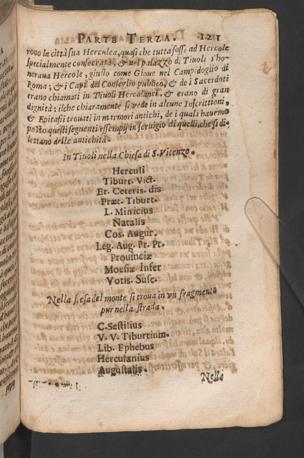 PARTE TERZA. 121
rono le città sua Herculea, quasi che tutta fosse ad Hercole
specialmente consecrata, & nel palazzo di Tiuoli s'ho-
noraua Hercole, giusto come Gioue nel Campidoglio di
Roma; & i Capi del Conseglio publico, & de i Sacerdoti
erano chiamati in Tiuoli Herculanei, & erano di gran
dignità; ilche chiaramente si vede in alcune Inscrittioni,
& Epitafii trouati in marmori antichi, de i quali hauemo
posto questi seguenti essempii in seruigio di quelli, che si di-
lettano delle antichità.
In Tiuoli nella Chiesa di S. Vicenzo.
Herculi
Tiburt. Vict.
Et. Ceteris. dis
Præt. Tiburt.
L. Minicius
Natalis
Cos. Augur.
Leg. Aug. Pr. Pr.
Prouinciæ
Moesiæ Infer
Votis. Susc.
Nella scesa del monte si troua in vn fragmento
pur nella strada.
C. Sestilius
V. V. Tiburtium.
Lib. Ephebus
Herculanius
Augustalis.
Nella